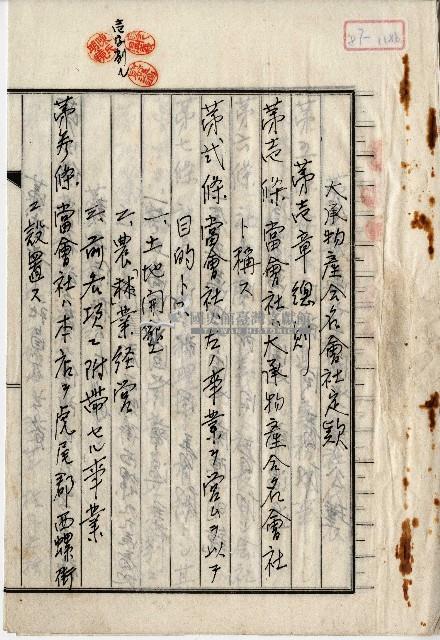 大承物產合名會社定款
第壱章 總則
第壱條 當會社ハ大承物產合名會社
ト稱ス
第弍條 當會社ハ左ノ事業ヲ営ムヲ以テ
目的トス
一、土地開墾
二、農耕業経営
三、前各項ニ附帯セル事業
第參條 當會社ハ本店ヲ虎尾郡西螺街
ニ設置ス
壱字削ル